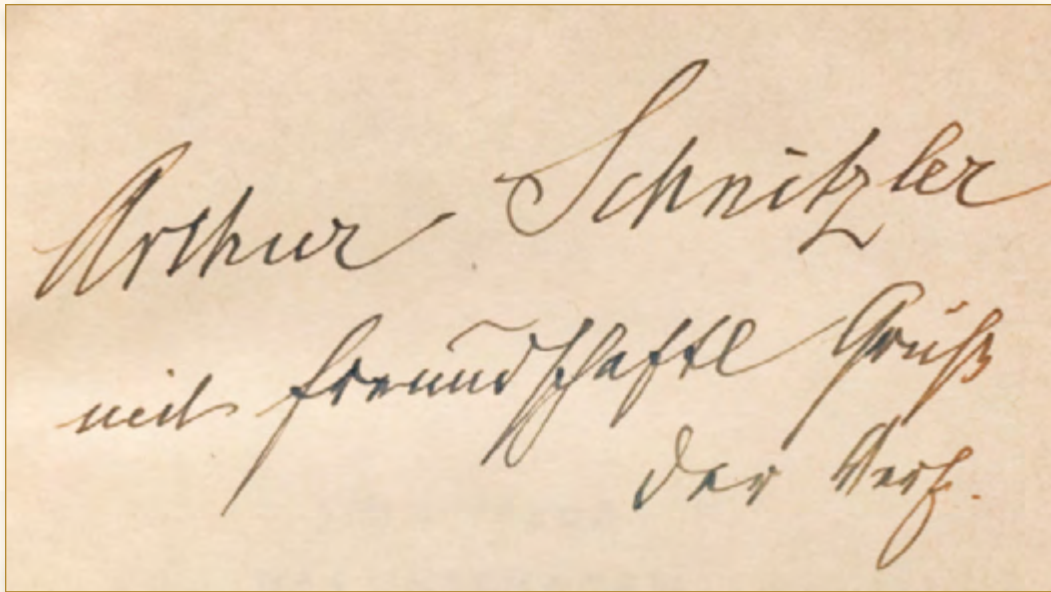 Arthur Schnitzler
mit freundschaftl Gruß
der Verf.